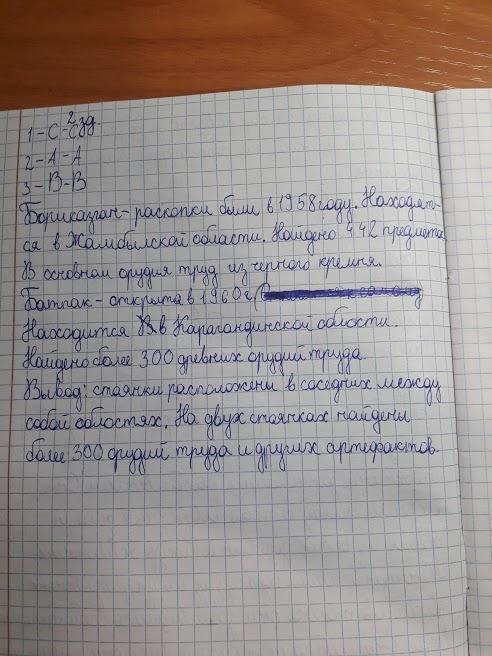 2 зд.
1-С-С
2-А-А
3-В-В
Бориказган- раскопки были в 1958 году. Находят-
ся в Жамбылской области. Найдено 442 предмета
В основном орудия труд из черного кремня.
Батпак - открыта в 1960 г
Находится В в Карагандинской области.
Найдено более 300 древних орудий труда.
Вывод: стоянки расположены в соседних между
собой областях. На двух стоянках найдены
более 300 орудий труда и других артефактов.